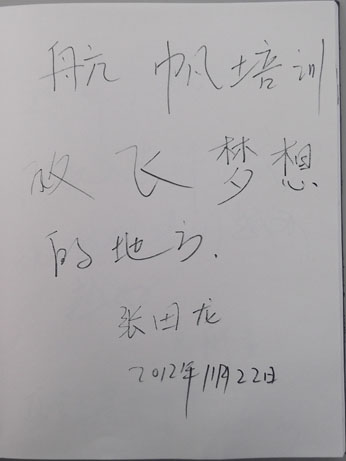 航帆培训
放飞梦想
的地方.
张田龙
2012年11月22日